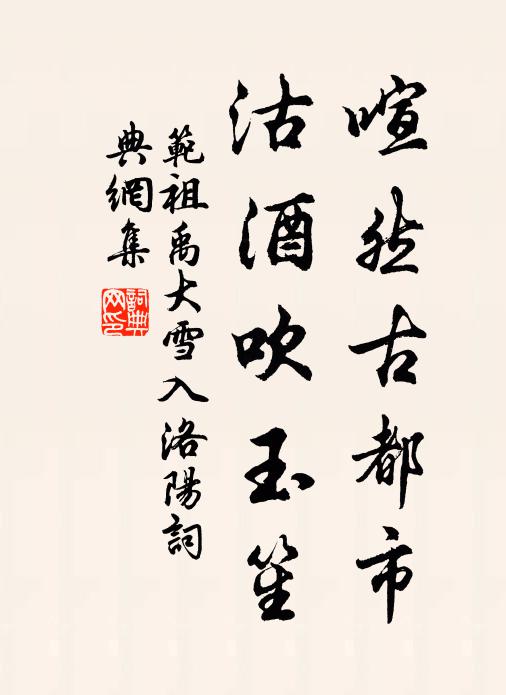 喧然古都市
沽酒吹玉笙
範祖禹大雪入洛陽詞
典網集
詞典
网印